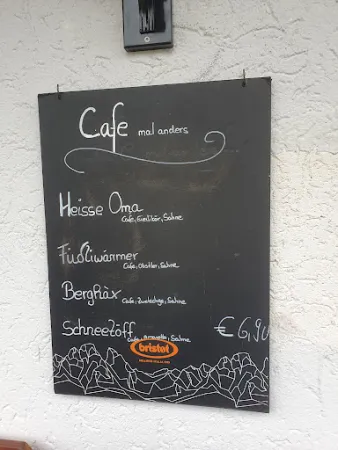 Cafe mal anders
Heisse Oma
Cafe, Eierlikör, Sahne
Füdliwärmer
Cafe, Obstler, Sahne
Berghäx
Cafe, Zwetschge, Sahne
Schneetöff
Cafe, Amaretto, Sahne
€ 6,90
bristol